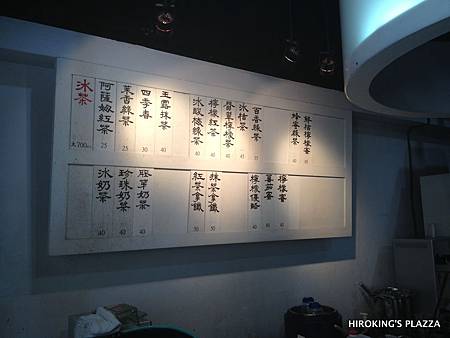 冰茶
大700
阿薩姆紅茶
25
茉香綠茶
25
四季春
30
玉露抹茶
40
綠茶
40
檸檬紅茶
40
檸檬茶
冰桔茶
百香綠茶
蜂蜜綠茶
40
鮮桔檸檬蜜
40
冰奶茶
40
珍珠奶茶
40
胚芽奶茶
40
紅茶拿鐵
50
抹茶拿鐵
50
檸檬
40
蕃茄蜜
檸檬蜜
HIROKING'S PLAZZA